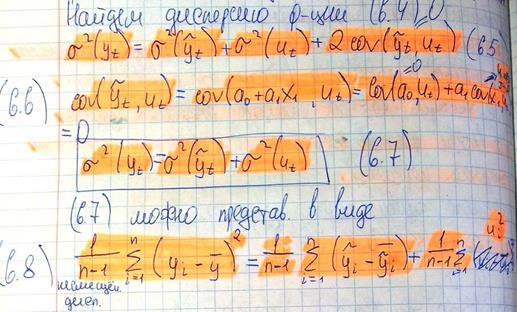 Найдем дисперсию ф-ции (6.4) =0
σ²(yₜ) = σ²(ỹₜ) + σ²(uₜ) + 2 cov(ỹₜ, uₜ) (6.5
(6.6) cov(ỹₜ, uₜ) = cov(a₀ + a₁x₁, uₜ) = cov(a₀, uₜ) + a₁ cov(x,
=0
= 0
σ²(yₜ) = σ²(ỹₜ) + σ²(uₜ) (6.7)
(6.7) можно представ. в виде
(6.8) 1/(n-1) Σᵢ₌₁ⁿ (yᵢ - ȳ)² = 1/(n-1) Σᵢ₌₁ⁿ (ỹᵢ - ȳᵢ) + 1/(n-1) Σᵢ₌₁ⁿ uᵢ²
дисп.